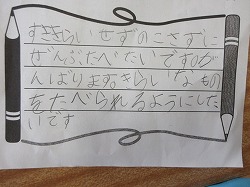 すききらいせずのこさずに
ぜんぶたべたいですがが
んばりますきらいなもの
をたべられるようにした
いです